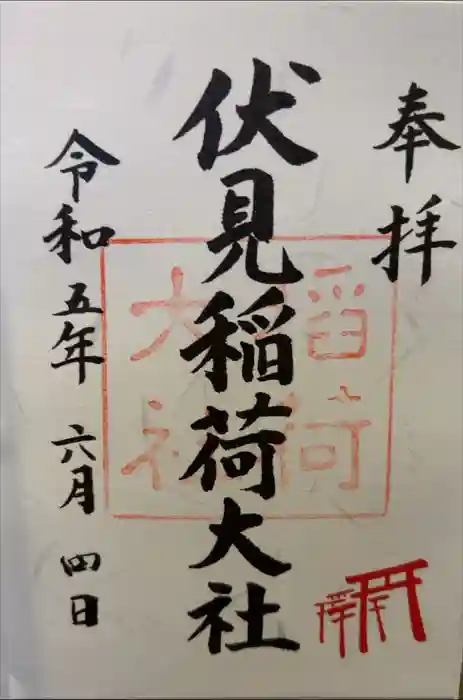 奉拝
伏見稲荷大社
稲荷
大社
令和五年 六月 四日